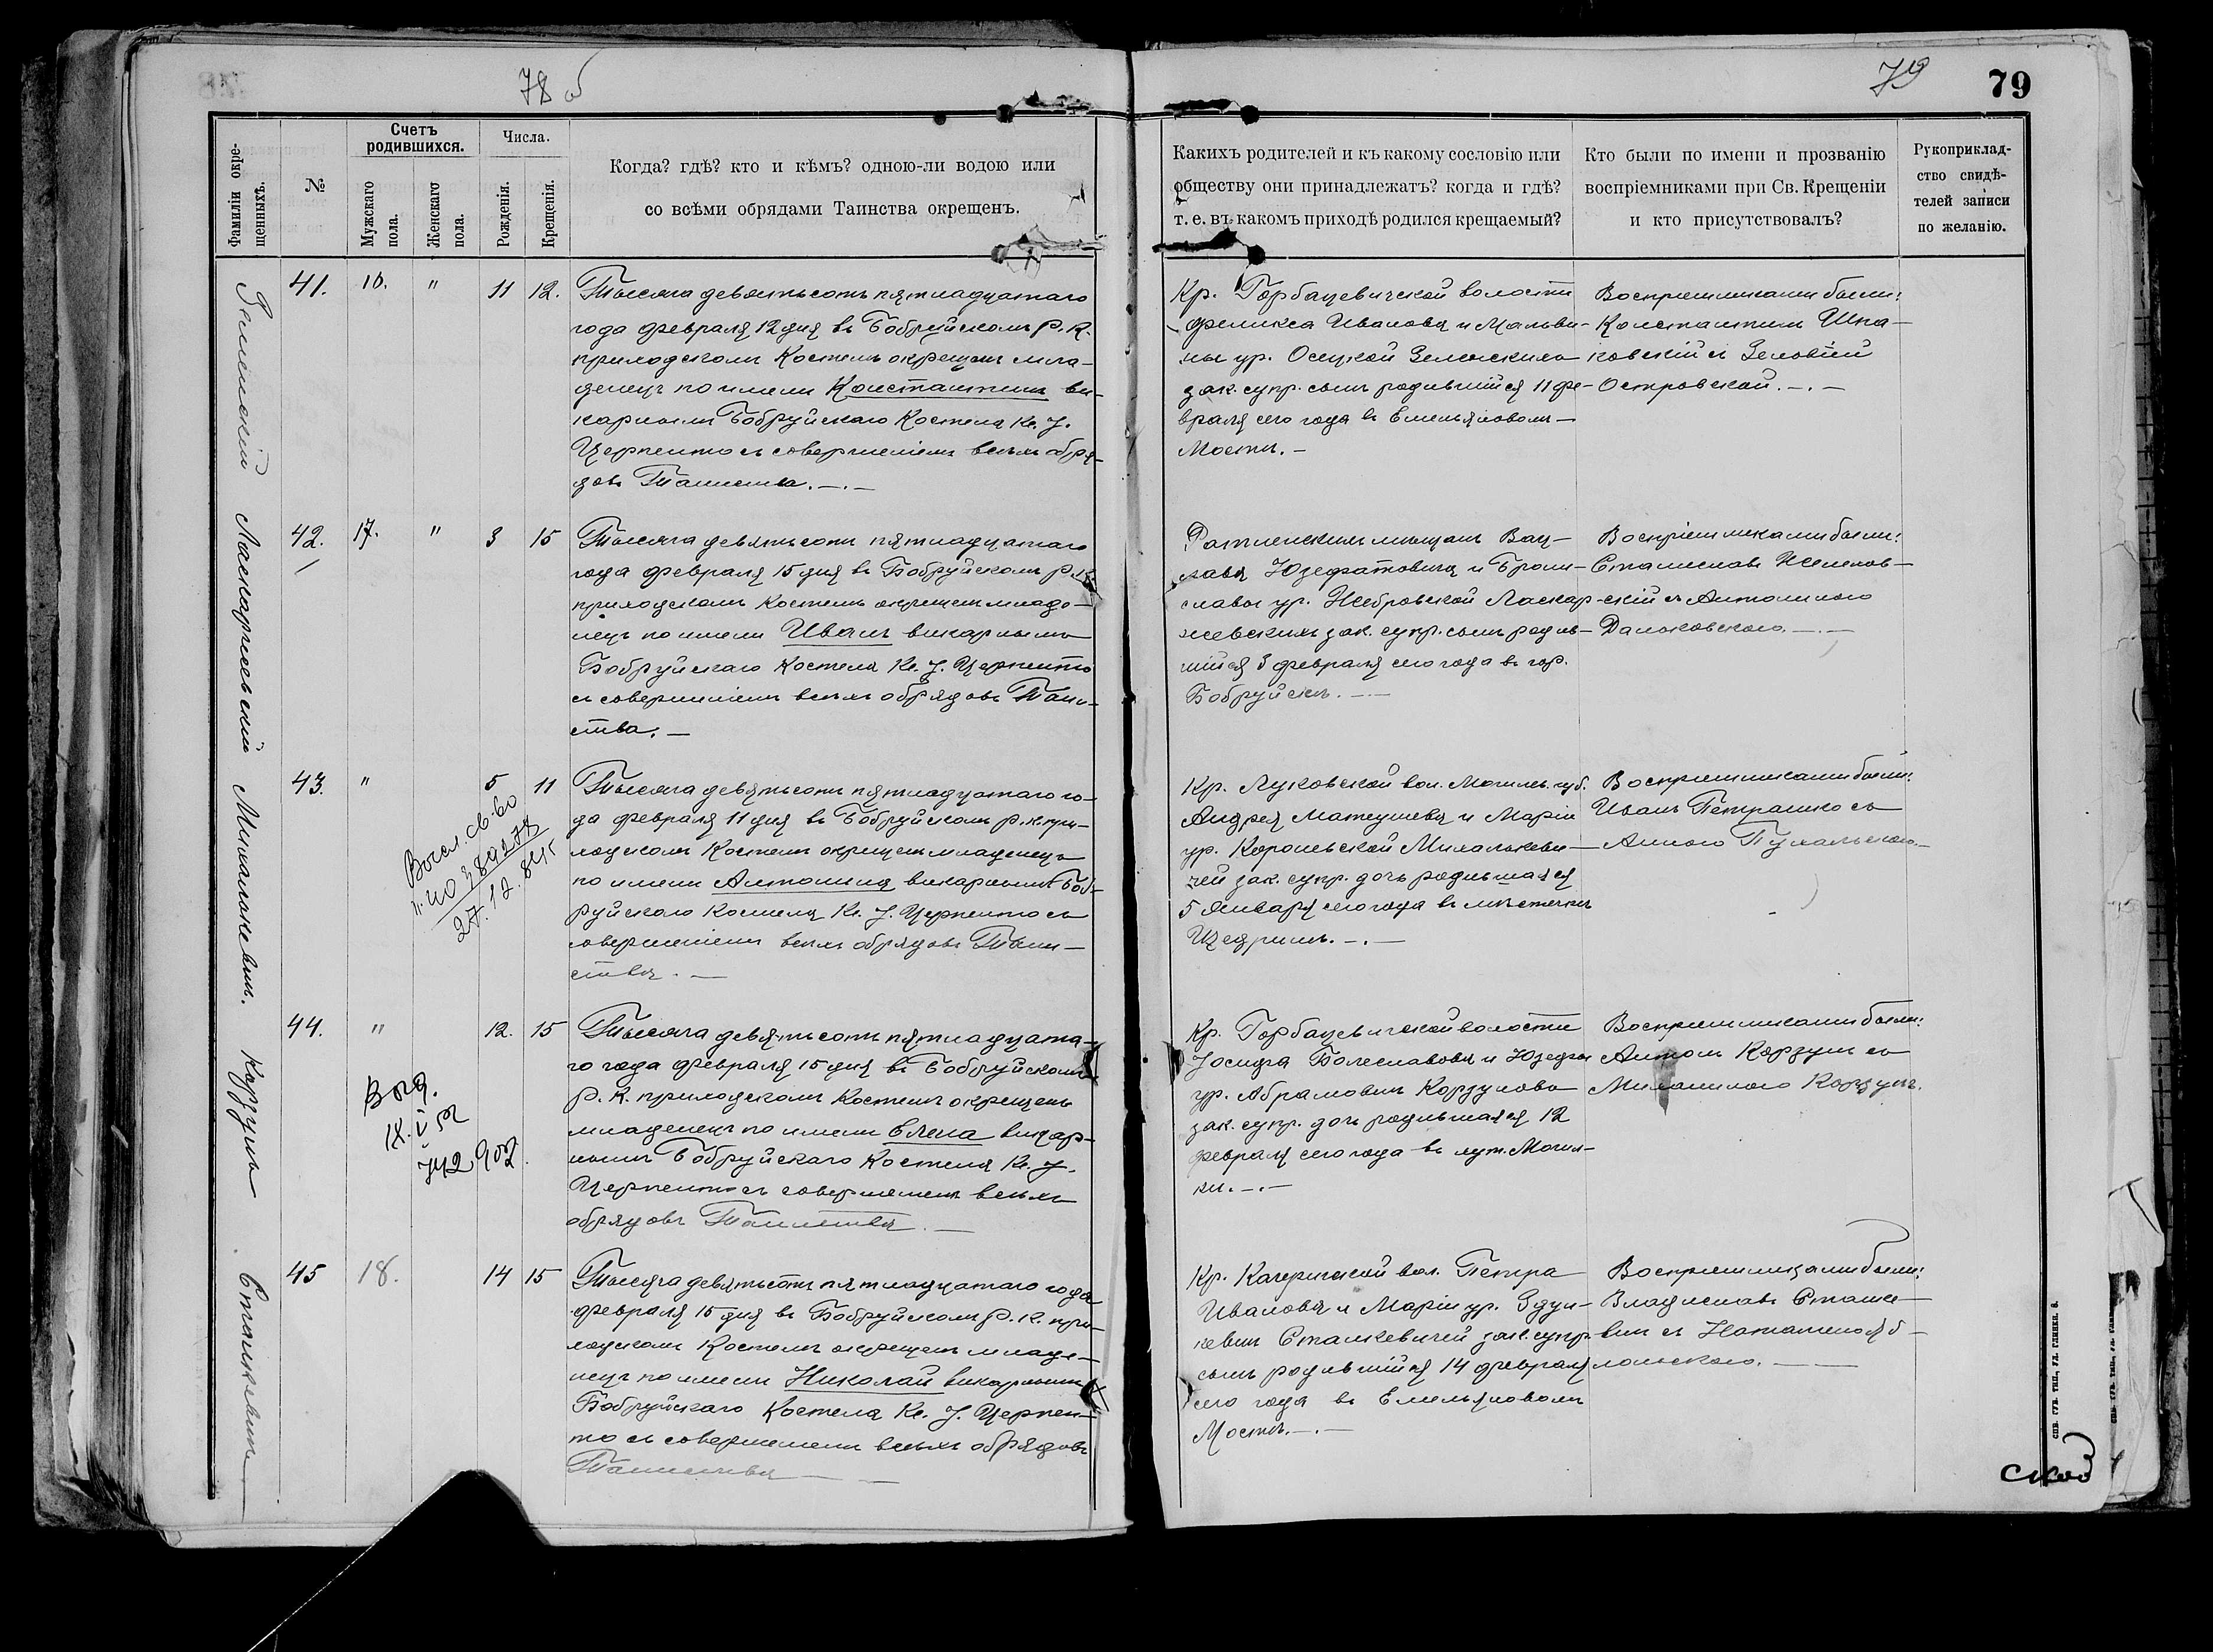 78 об
79
79
Фамиліи окре-
щенныхъ.
№
Счетъ
родившихся.
Мужскаго
пола.
Женскаго
пола.
Числа.
Рожденія.
Крещенія.
Когда? гдѣ? кто и кѣмъ? одною-ли водою или
со всѣми обрядами Таинства окрещенъ.
Какихъ родителей и къ какому сословію или
обществу они принадлежатъ? когда и гдѣ?
т. е. въ какомъ приходѣ родился крещаемый?
Кто были по имени и прозванію
воспріемниками при Св. Крещеніи
и кто присутствовалъ?
Рукоприклад-
ство свидѣ-
телей записи
по желанію.
Зеленскій
41. 16. " 11 12.
Тысяча девятьсотъ пятнадцатаго
года февраля 12 дня въ Бобруйскомъ Р. К.
приходскомъ Костелѣ окрещенъ мла-
денецъ по имени Константинъ ви-
карнымъ Бобруйскаго Костела Кс. І.
Церпенто съ совершеніемъ всѣхъ обря-
довъ Таинства. —.—
Кр. Горбацевичской волости
Феликса Иванова и Мальви-
ны ур. Осецкой Зеленскихъ
зак. супр. сынъ родившійся 11 фе-
враля сего года въ Емельяновомъ-
Мостѣ. —
Воспріемниками были:
Константинъ Шпа-
ковскій съ Зеновіей
Островской. —.—
Ласкаржевскій
42. 17. " 3 15
Тысяча девятьсотъ пятнадцатаго
года февраля 15 дня въ Бобруйскомъ Р. К.
приходскомъ Костелѣ окрещенъ младе-
нецъ по имени Иванъ викарнымъ
Бобруйскаго Костела Кс. І. Церпенто
съ совершеніемъ всѣхъ обрядовъ Таин-
ства. —
мѣщанъ Вац-
лава Юзефатовича и Брони-
славы ур. Жебровской Ласкар-
жевскихъ зак. супр. сынъ родив-
шійся 3 февраля сего года въ гор.
Бобруйскѣ. —.—
Воспріемниками были:
Станиславъ
скій съ Антониною
Даньковскою. —.—
Михалькевичъ.
43. " 5 11
Тысяча девятьсотъ пятнадцатаго го-
да февраля 11 дня въ Бобруйскомъ р. к. при-
ходскомъ Костелѣ окрещенъ младенецъ
по имени Антонина викарнымъ Боб-
руйскаго Костела Кс. І. Церпенто съ
совершеніемъ всѣхъ обрядовъ Таин-
ства. —
Кр. Луковской вол. Могилев. губ.
Андрея Матеушева и Маріи
ур. Королевской Михалькеви-
чей зак. супр. дочь родившаяся
5 января сего года въ мѣстечкѣ
Щедринѣ. —.—
Воспріемниками были:
Иванъ Петрашко съ
Анною Пухальскою. —
Высл. св-во
27.12.
Корзунъ
44. " 12. 15
Тысяча девятьсотъ пятнадцата-
го года февраля 15 дня въ Бобруйскомъ
Р. К. приходскомъ Костелѣ окрещенъ
младенецъ по имени Елена викар-
нымъ Бобруйскаго Костела Кс. І.
Церпенто съ совершеніемъ всѣхъ
обрядовъ Таинства. —
Кр. Горбацевичской волости
Іосифа Болеславова и Юзефы
ур. Абрамовичъ Корзуновъ
зак. супр. дочь родившаяся 12
февраля сего года въ хут. Могил-
ки. —.—
Воспріемниками были:
Антонъ Корзунъ съ
Михалиною Корзунъ.
Выд.
Станкевичъ
45 18. 14 15
Тысяча девятьсотъ пятнадцатаго года
февраля 15 дня въ Бобруйскомъ Р. К. при-
ходскомъ Костелѣ окрещенъ младе-
нецъ по имени Николай викарнымъ
Бобруйскаго Костела Кс. І. Церпен-
то съ совершеніемъ всѣхъ обрядовъ
Таинства —
Кр. Качеричской вол. Петра
Иванова и Маріи ур. Здан-
кевичъ Станкевичей зак. супр.
сынъ родившійся 14 февраля
сего года въ Емельяновомъ
Мостѣ. —.—
Воспріемниками были:
Владиславъ Станке-
вичъ съ
лонскою. —